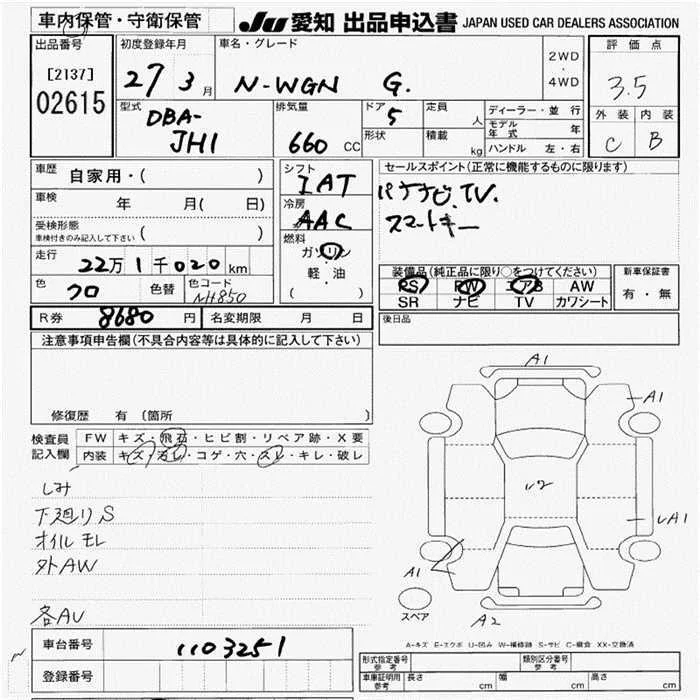 車内保管・守衛保管
JU 愛知 出品申込書 JAPAN USED CAR DEALERS ASSOCIATION
出品番号
[2137]
02615
初度登録年月
27 3 月
車名・グレード
N-WGN G.
2WD
・
4WD
評価点
3.5
外装 内装
C B
型式
DBA-
JH1
排気量
660 CC
ドア
5
形状
定員
人
積載
kg
ディーラー・並行
モデル年式 年
ハンドル 左・右
車歴
自家用・( )
車検
年 月( 日)
受検形態
車検付きのみ記入して下さい ( )
走行
22万1千020km
色
クロ
色替
色コード
NH850
シフト
IAT
冷房
AAC
燃料
ガソリン
軽・油
( )
セールスポイント(正常に機能するものに限ります)
パナナビ.TV.
スマートキー
装備品(純正品に限り○をつけてください)
PS PW エアB AW
SR ナビ TV カワシート
新車保証書
有・無
R券 8680 円
名変期限 月 日
後日品
注意事項申告欄(不具合内容等は具体的に記入して下さい)
修復歴 有 〔箇所 〕
検査員
記入欄
FW キズ・飛石・ヒビ割・リペア跡・X要
内装 キズ・汚レ・コゲ・穴・スレ・キレ・破レ
しみ
下廻りS
オイルモレ
外AW
各AU
A1
A1
A1
A1
A2
スペア
A-キズ E-エクボ U-凹み W-補修跡 S-サビ C-腐食 XX-交換済
車台番号
1103251
登録番号
形式指定番号
参考
類別区分番号
参考
車庫証明用
参考
長さ cm
幅 cm
高さ cm